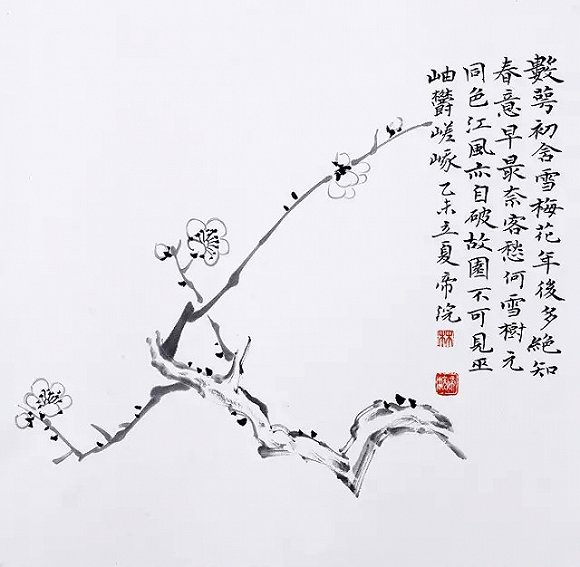 數萼初舍雪梅花年後多絕知
春意早最奈客愁何雪樹元
同色江風亦自破故園不可見巫
岫欝嵯峨乙未立夏帝浣